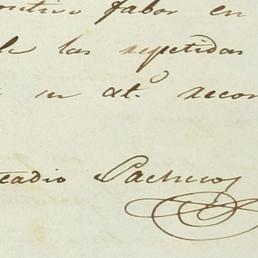 favor en
de las repetidas
su at.º recon
eadio Pacheco